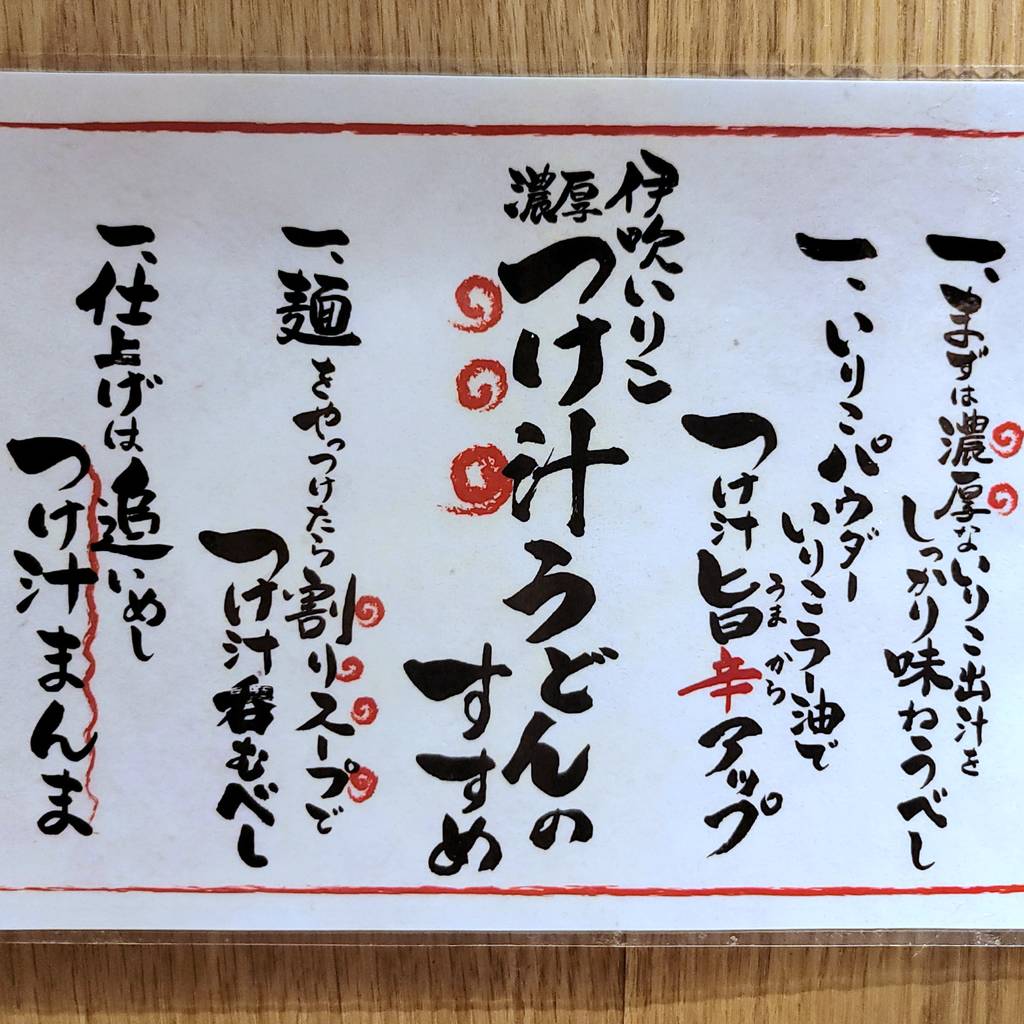 一、まずは濃厚ないりこ出汁を
しっかり味わうべし
一、いりこパウダー
いりこラー油で
つけ汁旨辛アップ
うま から
伊吹いりこ
濃厚
つけ汁うどんの
すすめ
一、麺をやっつけたら割りスープで
つけ汁呑むべし
一、仕上げは追いめし
つけ汁まんま